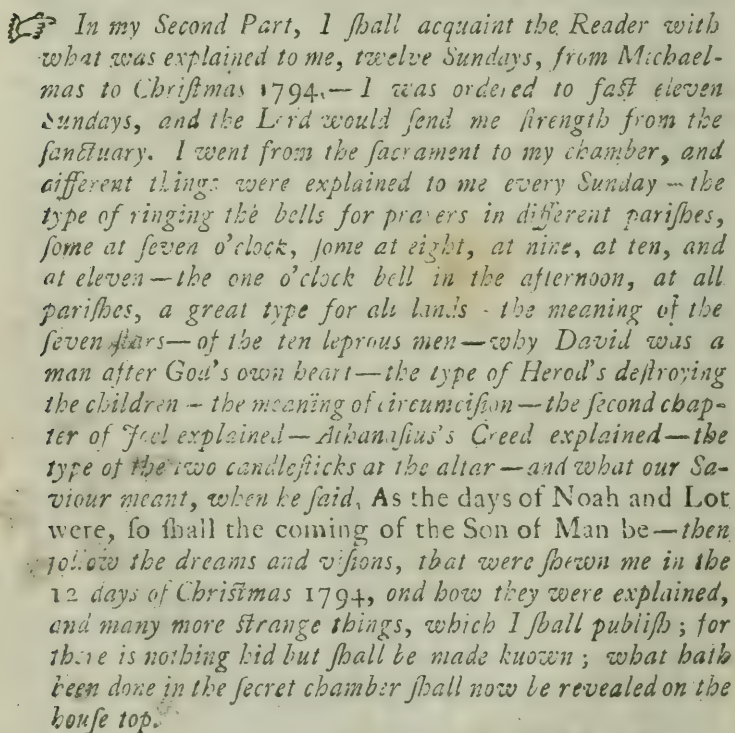 ☞ In my Second Part, I ſhall acquaint the Reader with
what was explained to me, twelve Sundays, from Michael-
mas to Chriſtmas 1794.—I was ordered to faſt eleven
Sundays, and the Lord would ſend me ſtrength from the
ſanctuary. I went from the ſacrament to my chamber, and
different things were explained to me every Sunday—the
type of ringing the bells for prayers in different pariſhes,
ſome at ſeven o'clock, ſome at eight, at nine, at ten, and
at eleven—the one o'clock bell in the afternoon, at all
pariſhes, a great type for all lands - the meaning of the
ſeven ſtars—of the ten leprous men—why David was a
man after God's own heart—the type of Herod's deſtroying
the children – the meaning of circumciſion—the ſecond chap-
ter of Joel explained—Athanaſius's Creed explained—the
type of the two candleſticks at the altar—and what our Sa-
viour meant, when he ſaid, As the days of Noah and Lot
were, ſo ſhall the coming of the Son of Man be—then
follow the dreams and viſions, that were ſhewn me in the
12 days of Chriſtmas 1794, ond how they were explained,
and many more ſtrange things, which I ſhall publiſh; for
there is nothing hid but ſhall be made kuown; what hath
been done in the ſecret chamber ſhall now be revealed on the
houſe top.